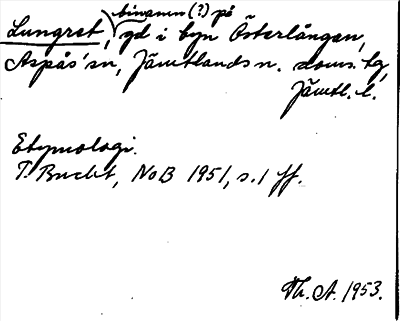 binamn (?) på
Lungret, gd i byn Österlången,
Aspås sn, Jämtlands n. doms. tg,
Jämtl. l.
Etymologi.
T. Bucht, NoB 1951, s. 1 ff.
Th. A. 1953.